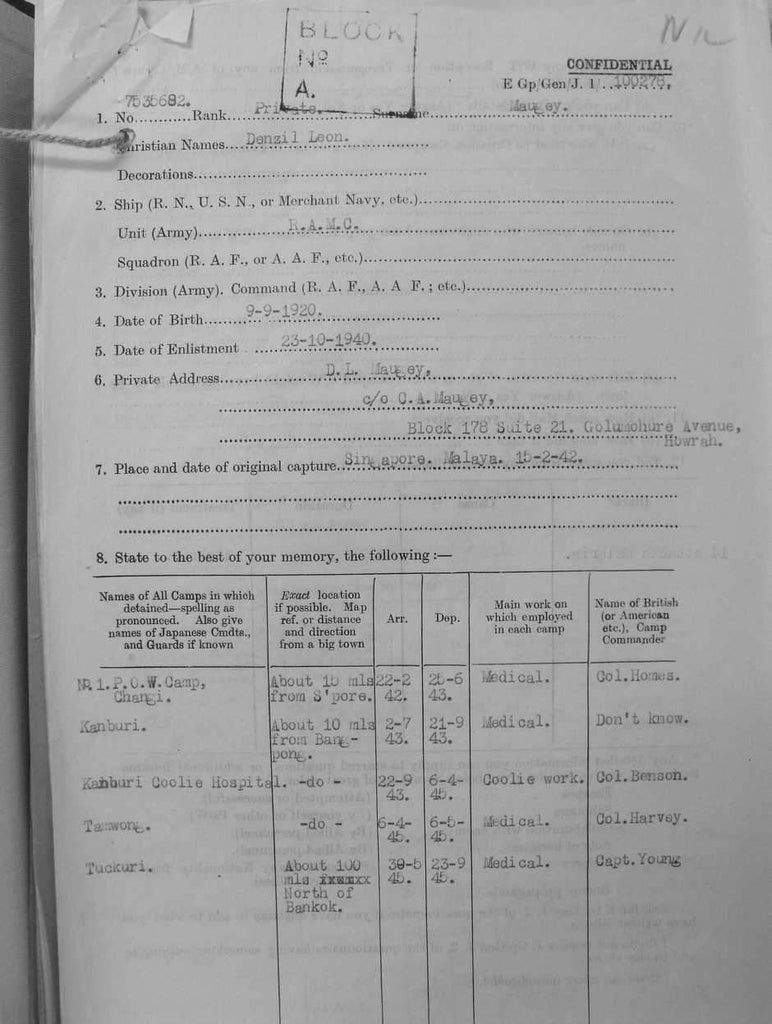 BLOCK
No
A.
CONFIDENTIAL
E Gp/Gen/J. 1/..100278.
7535682.
1. No............Rank....Private.....Surname........Maugey.
Christian Names....Denzil Leon.
Decorations
2. Ship (R. N., U. S. N., or Merchant Navy, etc.)
Unit (Army)..........R.A.M.C.
Squadron (R. A. F., or A. A. F., etc.)
3. Division (Army). Command (R. A. F., A. A F. ; etc.)
4. Date of Birth.......9-9-1920.
5. Date of Enlistment ....23-10-1940.
6. Private Address..........D.L. Maugey,
c/o C.A.Maugey,
Block 178 Suite 21. Avenue,
Howrah.
7. Place and date of original capture..Singapore. Malaya. 15-2-42.
8. State to the best of your memory, the following :—
Names of All Camps in which detained—spelling as pronounced. Also give names of Japanese Cmdts., and Guards if known
Exact location if possible. Map ref. or distance and direction from a big town
Arr.
Dep.
Main work on which employed in each camp
Name of British (or American etc.), Camp Commander
№ 1.P.O.W.Camp, Changi.
About 15 mls from S'pore.
22-2 42.
43.
Medical.
Col.Homes.
Kanburi.
About 10 mls from Bang-pong.
2-7 43.
21-9 43.
Medical.
Don't know.
Kanburi Coolie Hospital.
-do -
22-9 43.
6-4- 45.
Coolie work.
Col.Benson.
Tamwong.
-do -
6-4- 45.
6-5- 45.
Medical.
Col.Harvey.
Tuckuri.
About 100 mls North of Bankok.
45.
23-9 45.
Medical.
Capt.Young